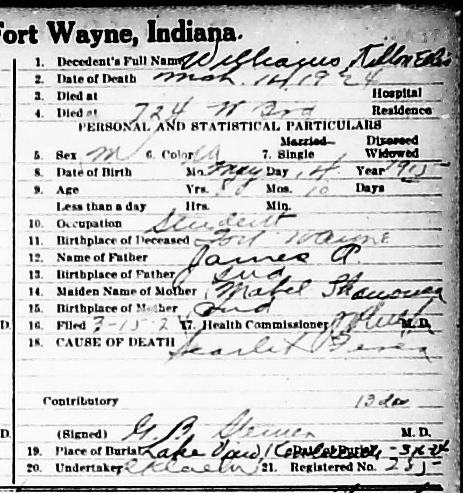 Fort Wayne, Indiana.
1. Decedent's Full Name Williams,
2. Date of Death Mch. 14 1924
3. Died at Hospital
4. Died at 724 W 3rd Residence
PERSONAL AND STATISTICAL PARTICULARS
Married Divorced
5. Sex M 6. Color W 7. Single Widowed
8. Date of Birth Mo. May Day 14 Year 1915
9. Age Yrs. 8 Mos. 10 Days
Less than a day Hrs. Min.
10. Occupation Student
11. Birthplace of Deceased Fort Wayne
12. Name of Father James A
13. Birthplace of Father Ind
14. Maiden Name of Mother Mabel
15. Birthplace of Mother Ind
D. 16. Filed 3-15-2 17. Health Commissioner M. D.
18. CAUSE OF DEATH Scarlet Fever
Contributory 13 da
D. (Signed) G. B. M. D.
19. Place of Burial Lake View Date of Burial
20. Undertaker 21. Registered No. 285